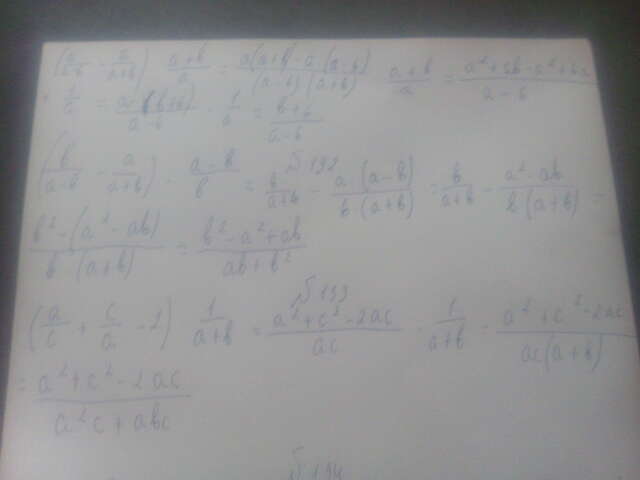 (a/(a-b) - a/(a+b)) · (a+b)/a = (a(a+b)-a(a-b))/((a-b)(a+b)) · (a+b)/a = (a²+ab-a²+ba)/(a-b)
· 1/a = · 1/a = (b+b)/(a-b)
№192
(b/(a-b) - a/(a+b)) · (a-b)/b = b/(a+b) - (a·(a-b))/(b·(a+b)) = b/(a+b) - (a²-ab)/(b(a+b)) =
(b²-(a²-ab))/(b(a+b)) = (b²-a²+ab)/(ab+b²)
№193
(a/c + c/a - 2) 1/(a+b) = (a²+c²-2ac)/(ac) · 1/(a+b) = (a²+c²-2ac)/(ac(a+b))
= (a²+c²-2ac)/(a²c+abc)
№194